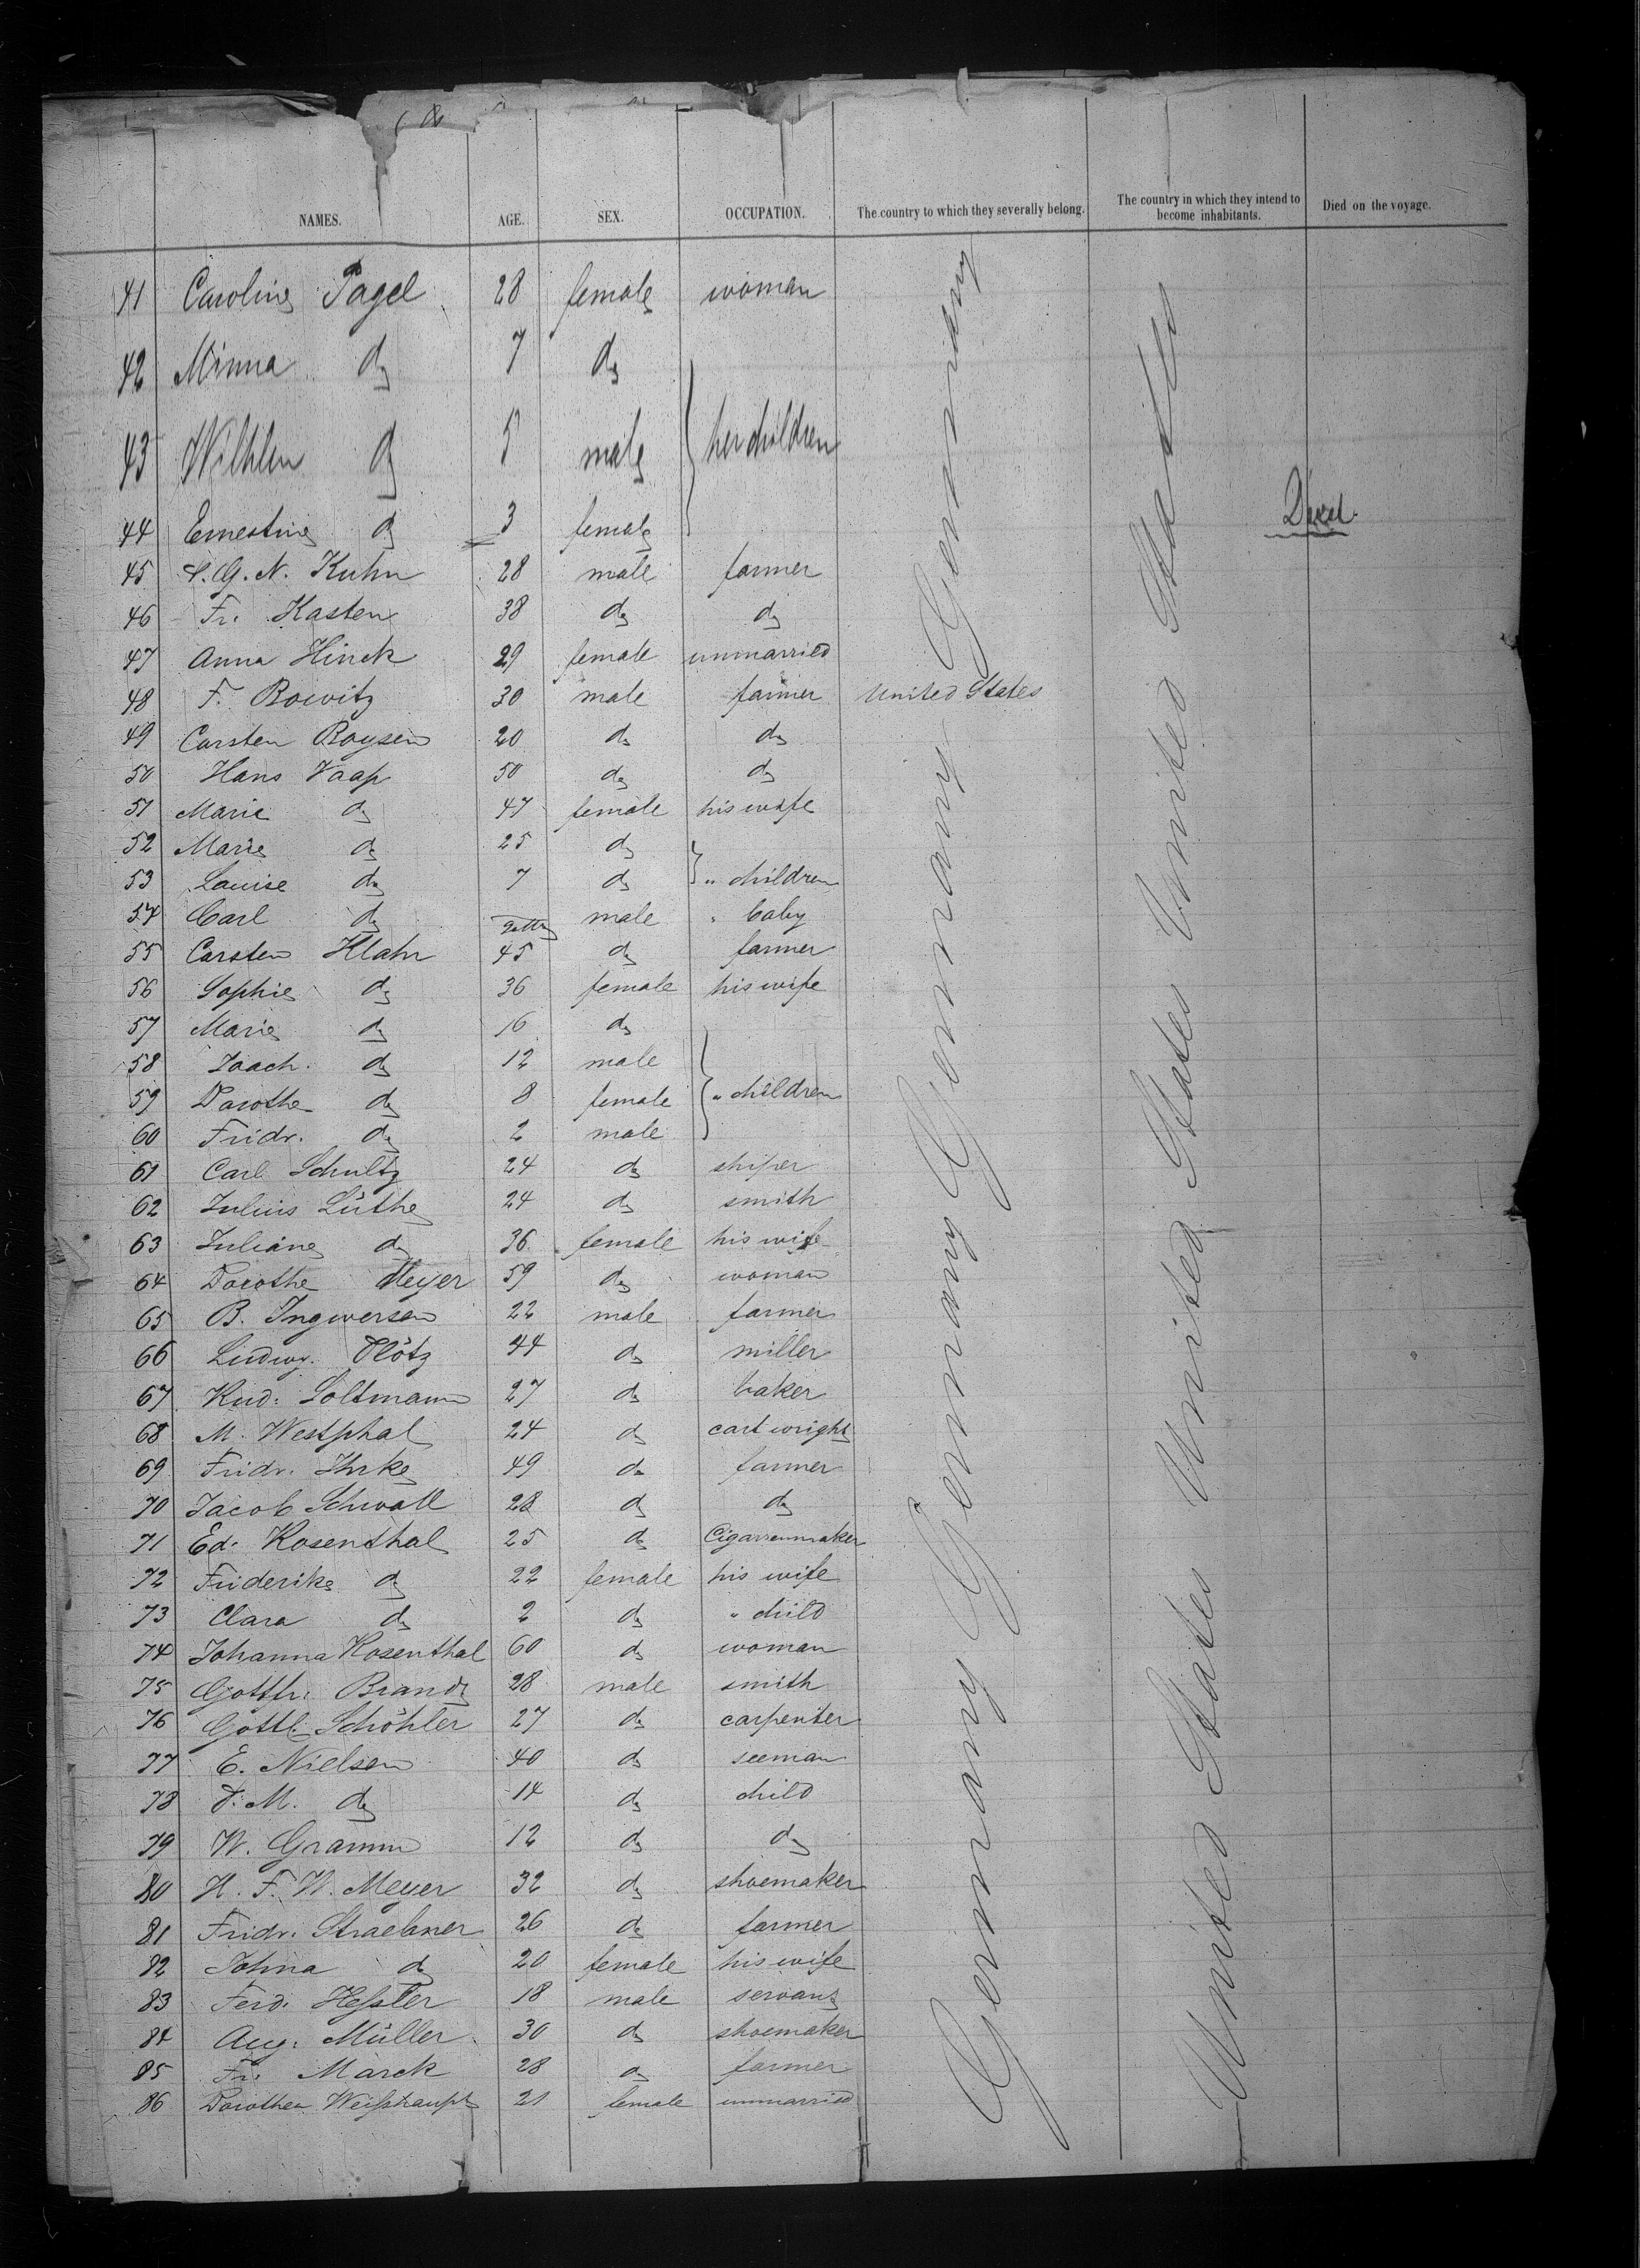 NAMES. AGE. SEX. OCCUPATION. The country to which they severally belong. The country in which they intend to become inhabitants. Died on the voyage.
41 Caroline Pagel 28 female woman
42 Minna do 7 do
43 Wilhlm do 5 male her children
44 Ernestine do 3 female Died.
45 G. N. Kuhn 28 male farmer
46 Fr. Kasten 38 do do
47 Anna Hinck 29 female unmarried
48 F. Bowitz 30 male farmer United States
49 Carsten Boysen 20 do do
50 Hans Vaap 50 do do
51 Marie do 47 female his wife
52 Marie do 25 do
53 Louise do 7 do " children
54 Carl do male " baby
55 Carsten Klahn 45 do farmer
56 Sophie do 36 female his wife
57 Marie do 16 do
58 Joach. do 12 male
59 Dorothe do 8 female " children
60 Fridr. do 2 male
61 Carl Schultz 24 do shiper
62 Julius Lüthe 24 do smith
63 Juliane do 36 female his wife
64 Dorothe Meyer 59 do woman
65 B. Ingwersen 22 male farmer
66 Ludwg. Plötz 44 do miller
67 Rud. Soltmann 27 do baker
68 M. Westphal 24 do cart wright
69 Fridr. Ihrke 49 do farmer
70 Jacob Schwall 28 do do
71 Ed. Rosenthal 25 do Cigarrenmaker
72 Friderike do 22 female his wife
73 Clara do 2 do " child
74 Johanna Rosenthal 60 do woman
75 Gottfr. Brandt 28 male smith
76 Gottl. Schöhler 27 do carpenter
77 E. Nielsen 40 do seeman
78 M. do 14 do child
79 W. Gramm 12 do do
80 H. F. W. Meyer 32 do shoemaker
81 Fridr. Straebner 26 do farmer
82 Johna do 20 female his wife
83 Ferd. Heßler 18 male servant
84 Aug. Müller 30 do shoemaker
85 Fr. Marck 28 do farmer
86 Dorothea Weißhaupt 21 female unmarried
Germany Germany Germany Germany
United States United States United States